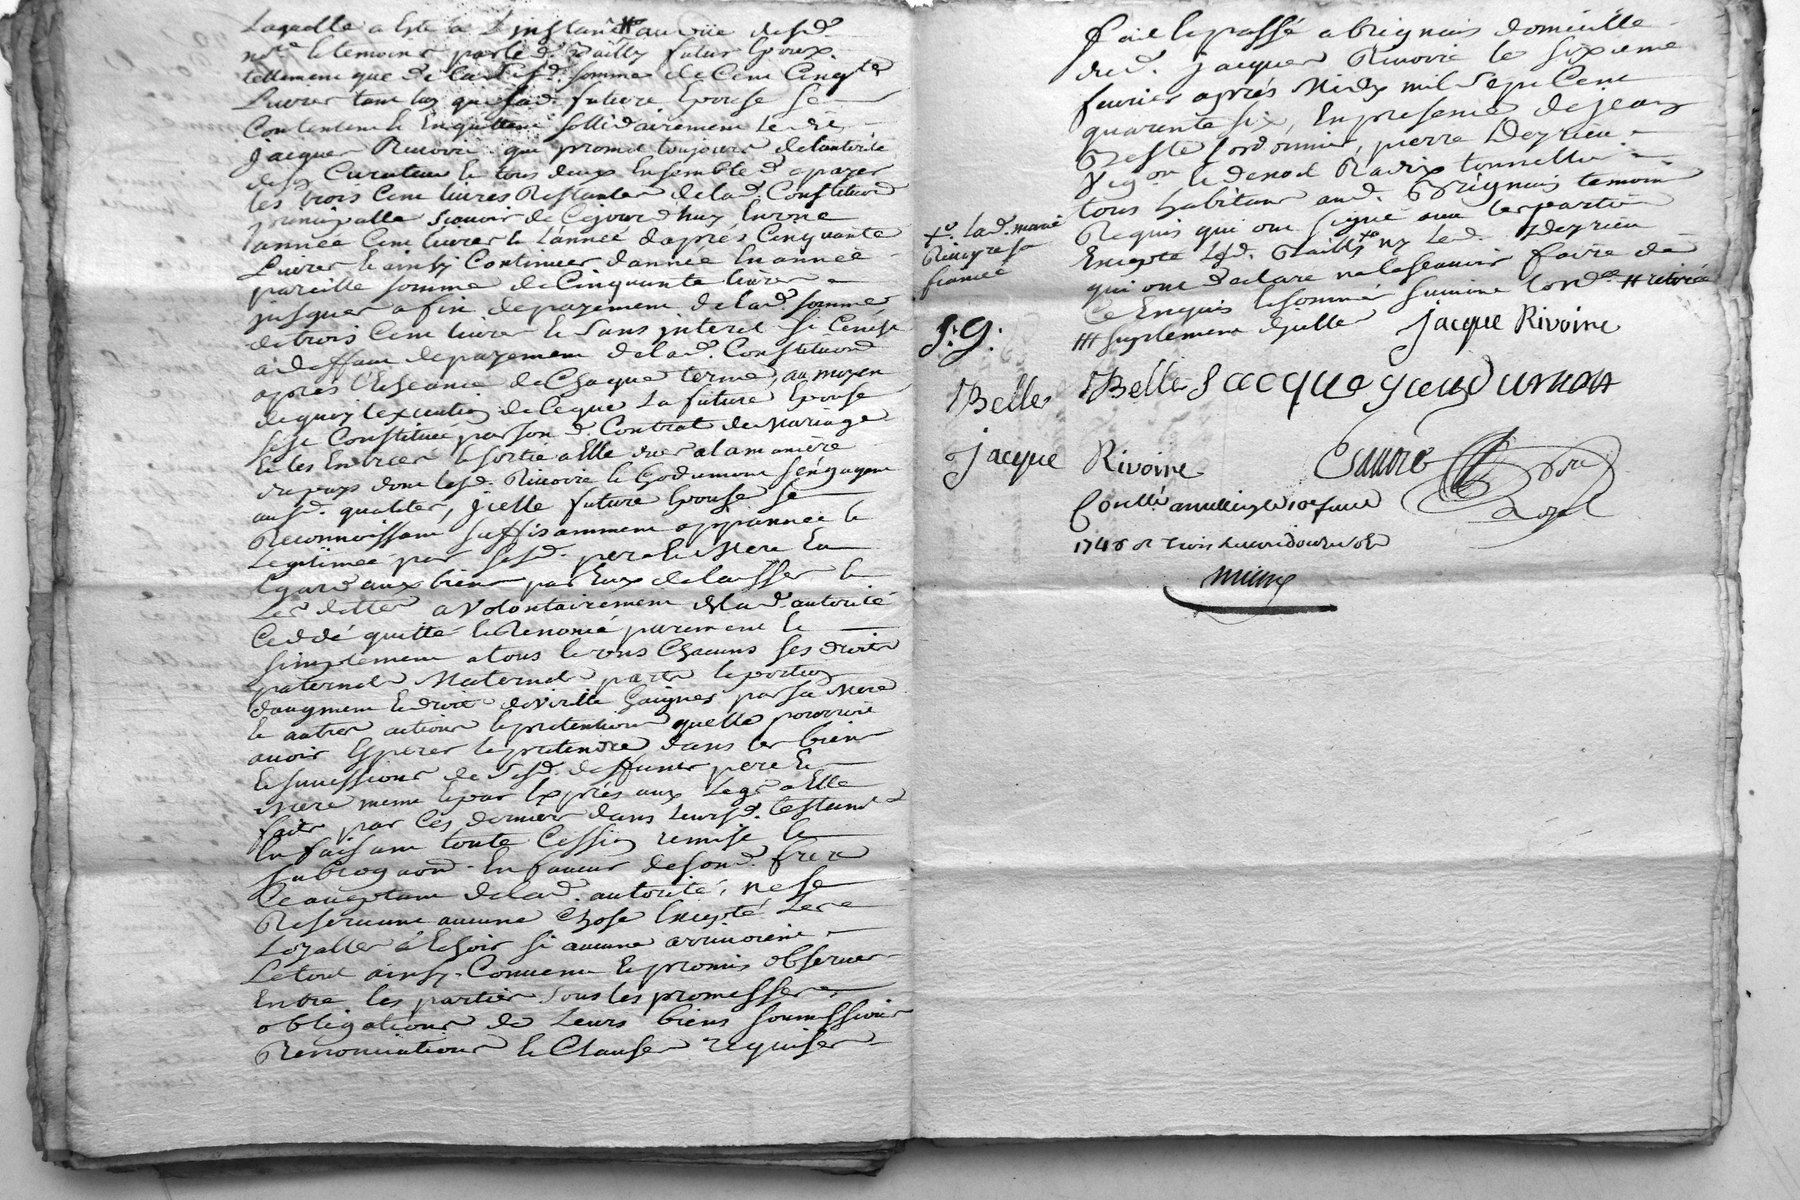 Laquelle a esté a L'instant ## au vüe desd.
no.re & temoins par led. Bailly futur Epoux
tellement que de lad. somme de Cent Cinqte
Livres tant luy que lad. future Epouse se
Contentent & En quittent sollidairement led.
Jacques Rivoire qui promet toujours de l'autorité
desd. Curateur & tous deux Ensemble de payer
les trois Cent livres Restantes de lad. Constitution
principalle sçavoir de Cejourd'huy En une
année Cent livres & l'année d'aprés Cinquante
Livres & ainsy Continuer d'année En année
pareille somme de Cinquante livres
jusques a fin de payement de lad. somme
de trois Cent livres & sans jnteret si Cen'est
a deffaut de payement de lad. Constitution
aprés l'Echeance de Chaque terme, au moyen
de quoy & execution de Ceque La future Epouse
se Constitue par son d. Contrat de Mariage
& les Entrées & sortie a Elle dues a la maniere
du pays dont lesd. Rivoire & Godumont s'engagent
ausd. qualités, jcelle future Epouse se
Reconnoissant suffisamment appannée &
Legitimée par sesd. pere & Mere Eu
Egard aux biens par Eux delaissés &
Les dettes a volontairement de lad. autorité
Ceddé quitté & Renoncé purement &
simplement a tous & uns Chacuns ses droits
paternels Maternels parts & portion
d'augment & droit de virille Gaignés par sa Mere
& autres actions & pretentions quelle pourroit
avoir Esperer & pretendre dans les biens
& successions de sesd. deffunts pere &
Mere meme & par Exprés aux Legs a Elle
faits par Ces derniers dans leursd. testament
En faisant toute Cession remise &
subrogaon En faveur de sond. frere
Ce acceptant de lad. autorité, ne se
Reservant aucune Chose Excepté Les
Loyalles Echoir si aucune arrivoient
Le tout ainsy Convenu & promis observer
Entre les parties sous les promesses
obligations de Leurs biens soumissions
Renonciations & Clauses requises
fait & passé a brignais domicille
dud. Jacques Rivoire le sixieme
fevrier aprés Midy mil sept Cent
quarente six, En presence de jean
Reste Cordonnier, pierre Deyrieu
Vigon & Benoit Radix tonnellier
tous habitans aud. Brignais temoins
Requis qui ont signé avec les parties
Excepté Led. Bailly x° ny Led. Deyrieu
qui ont declaré ne le sçavoir faire de
Ce Enquis & sommés suivant Lord.ce ## retirée
### suplement d'jcelle
x° Lad. marie
Rivoyre sa
fiancée
J. G.
Jacque Rivoire
Belles Belles Jacque godumon
Jacque Rivoire
Controllé a le 10e fevrier
1746 Rt trois livres douze sols